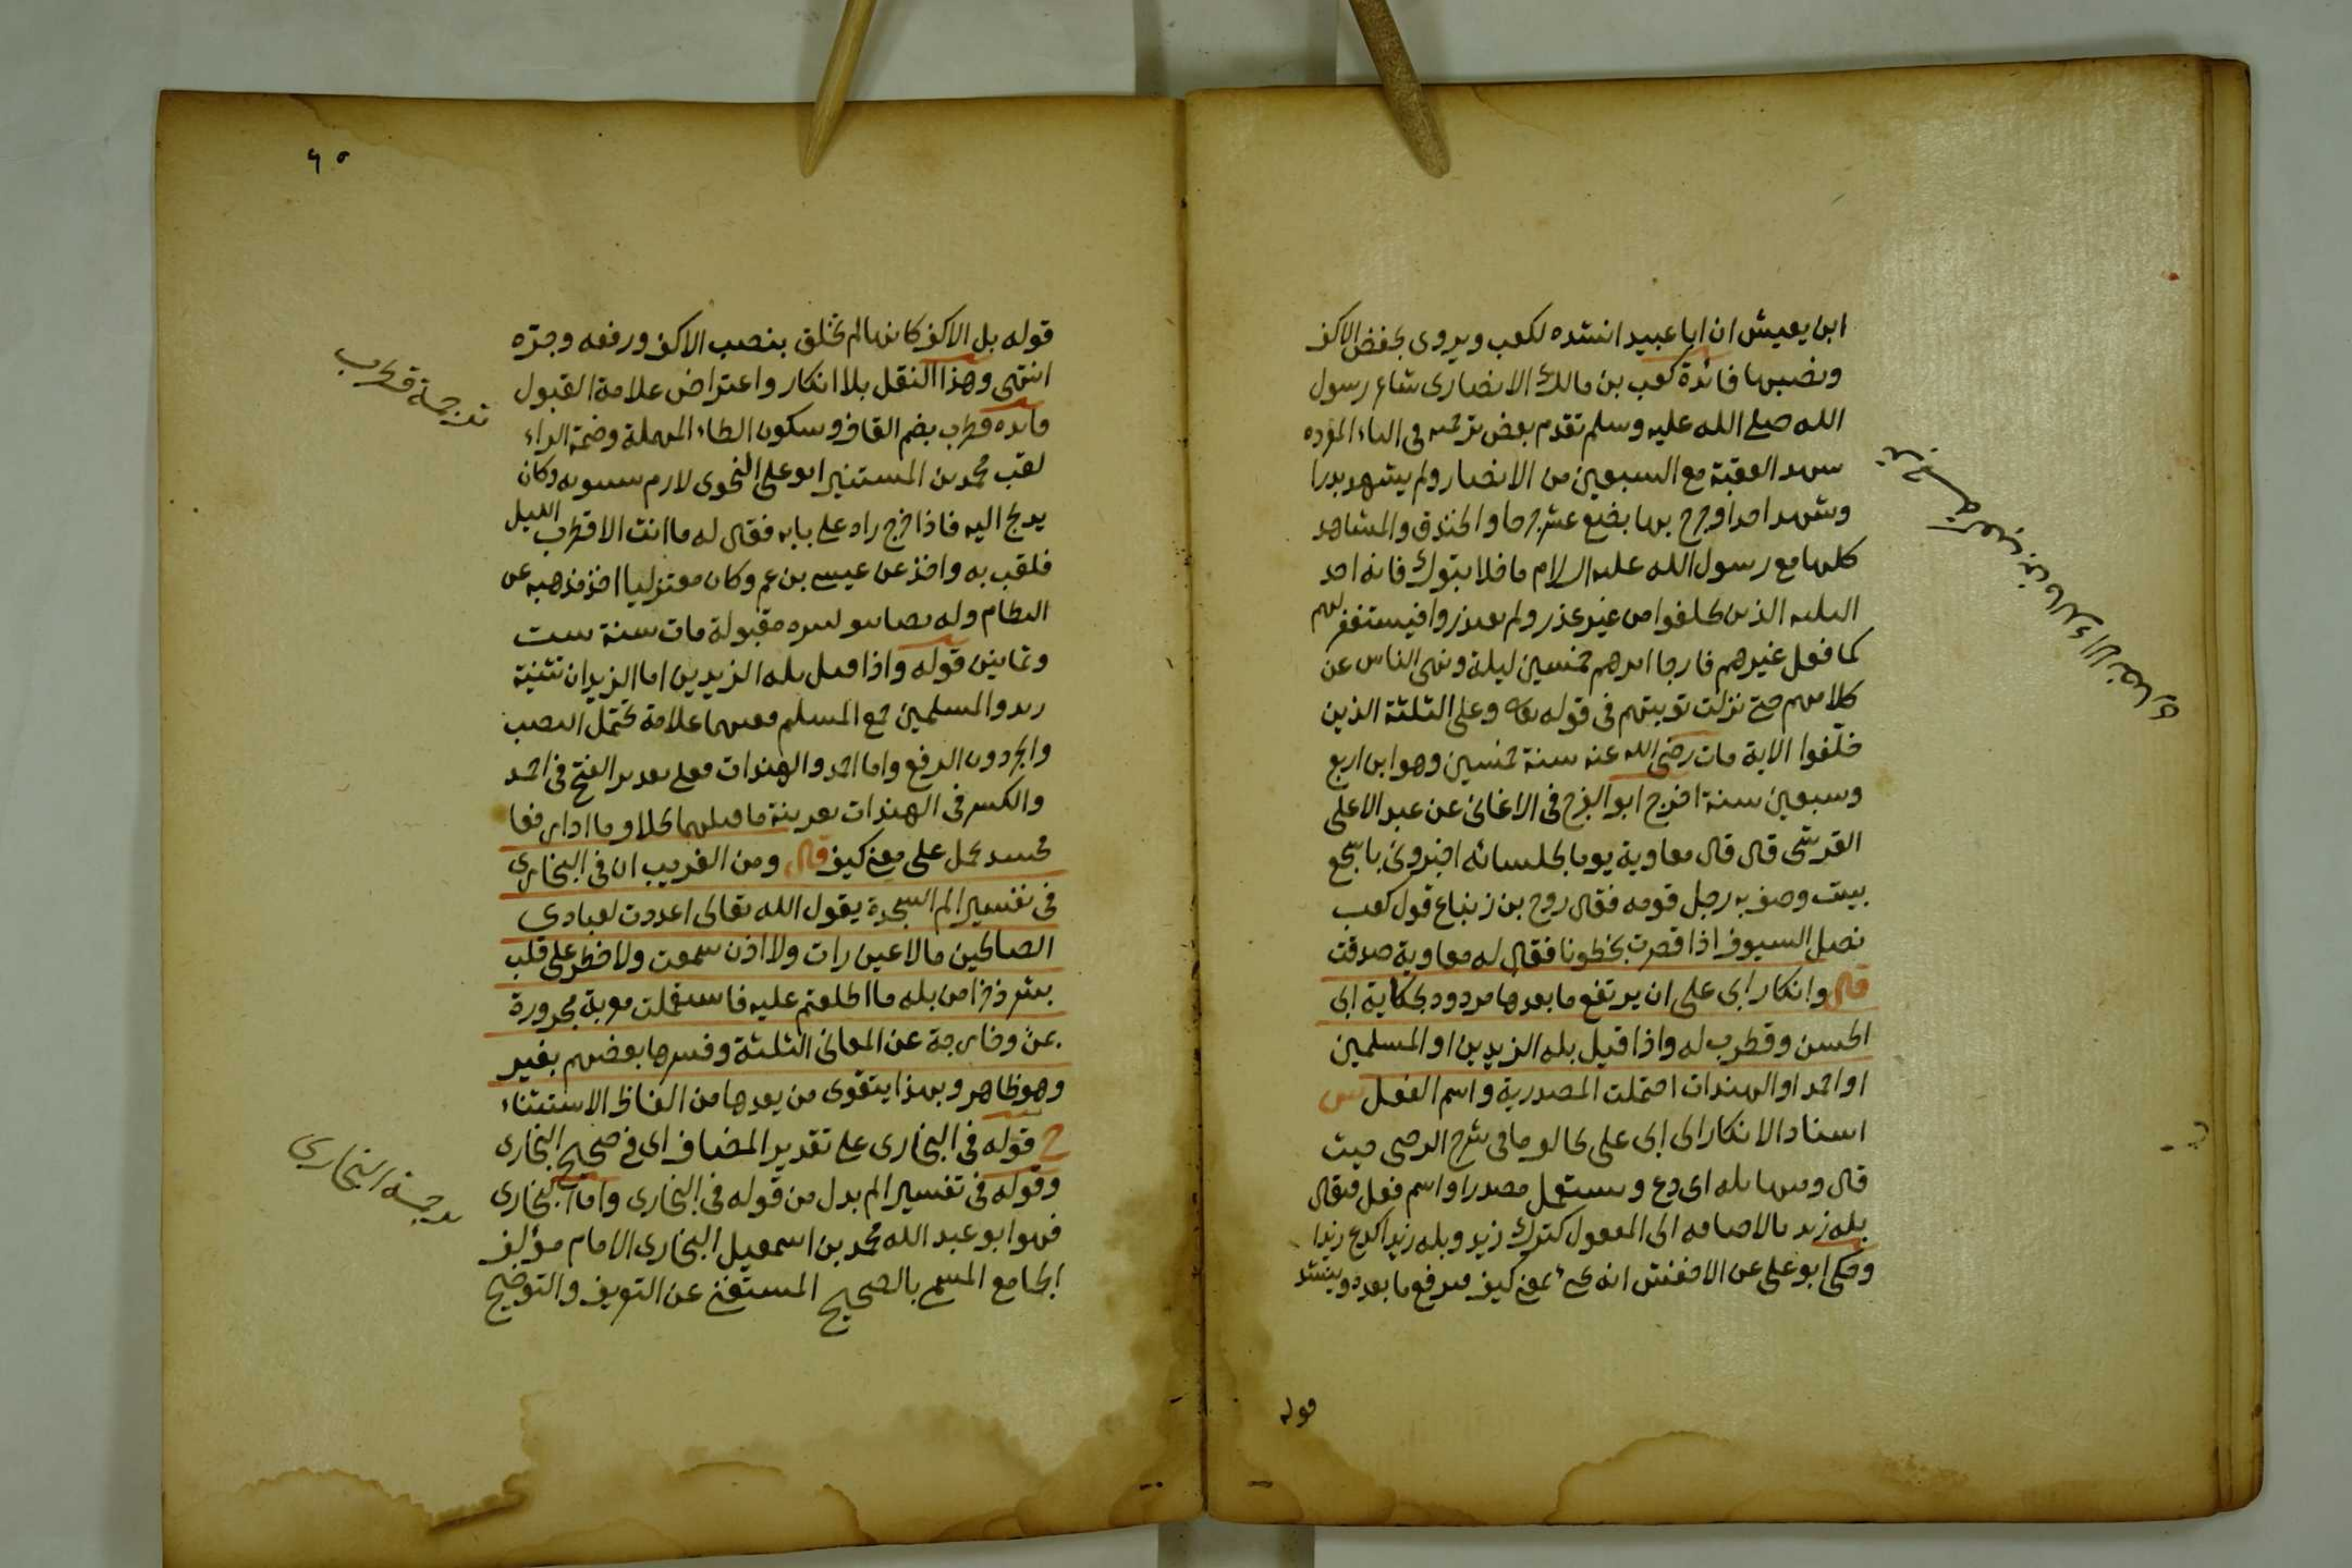 ابن يعيش ان ابا عبيد انشده لكعب ويروى بخفض الاكف
ونصبها فائدة كعب بن مالك الانصارى شاعر رسول
الله صلى الله عليه وسلم تقدم بعض ترجمته فى الباء المفرده
شهد العقبة مع السبعين من الانصار ولم يشهد بدرا
وشهد احدا وجرح بها بضع عشر جرحا والخندق والمشاهد
كلها مع رسول الله عليه السلام ما خلا تبوك فانه احد
الثلثه الذين تخلفوا من غير عذر ولم يعتذروا فيستغفر لهم
كما فعل غيرهم فارجا امرهم خمسين ليلة ونهى الناس عن
كلامهم حتى نزلت توبتهم فى قوله تعالى وعلى الثلثة الذين
خلّفوا الاية مات رضى الله عنه سنة خمسين وهو ابن اربع
وسبعين سنة اخرج ابو الفرج فى الاغانى عن عبد الاعلى
القرشى قال قال معاوية يوما لجلسائه اخبرونى باشجع
بيت وصف به رجل قومه فقال روح بن زنباع قول كعب
نصل السيوف اذا قصرت بخطونا فقال له معاوية صدقت
قال وانكار ابى على ان يرتفع ما بعدها مردود بحكاية ابى
الحسن وقطرب له واذا قيل بله الزيدين او المسلمين
او احمد او الهندات احتملت المصدرية واسم الفعل س
اسناد الانكار الى ابى على مخالف لما فى شرح الرضى حيث
قال ومنها بله اى دع ويستعمل مصدرا واسم فعل فيقال
بله زيد بالاضافه الى المفعول كترك زيد وبله زيدا كدع زيدا
وحكى ابو على عن الاخفش انه يجئ بمعنى كيف فيرفع ما بعده وينشد
قوله
كعب بن مالك الانصارى
٦٥
قوله بل الاكف كانها لم تخلق بنصب الاكف ورفعه وجرّه
انتهى وهذا النقل بلا انكار واعتراض علامة القبول
فائده قطرب بضم القاف وسكون الطاء المهملة وضمة الراء
لقب محمد بن المستنير ابو على النحوى لازم سيبويه وكان
يدلج اليه فاذا خرج راه على بابه فقال له ما انت الا قطرب الليل
فلقب به واخذ عن عيسى بن عمر وكان معتزليا اخذ مذهبه عن
النظام وله تصانيف كثيره مقبولة مات سنة ست
وثمانين قوله واذا قيل بله الزيدين اما الزيدان تثنية
زيد والمسلمين جمع المسلم ففيهما علامة تحتمل النصب
والجر دون الرفع واما احمد والهندات فعلى تقدير الفتح فى احمد
والكسر فى الهندات بقرينة ما قبلهما بخلاف ما اذا رفعا
فحينئذ يحمل على معنى كيف قال ومن الغريب ان فى البخارى
فى تفسير الم السجدة يقول الله تعالى اعددت لعبادى
الصالحين ما لا عين رات ولا اذن سمعت ولا خطر على قلب
بشر ذخرا من بله ما اطلعتم عليه فاستعملت معربة مجرورة
بمن وخارجة عن المعانى الثلثة وفسرها بعضهم بغير
وهو ظاهر وبهذا يتقوى من يعدها من الفاظ الاستثناء
ح قوله فى البخارى على تقدير المضاف اى فى صحيح البخارى
وقوله فى تفسير الم بدل من قوله فى البخارى واما البخارى
فهو ابو عبد الله محمد بن اسمعيل البخارى الامام مؤلف
الجامع المسمى بالصحيح المستغنى عن التعريف والتوضيح
ترجمة قطرب
ترجمة البخارى